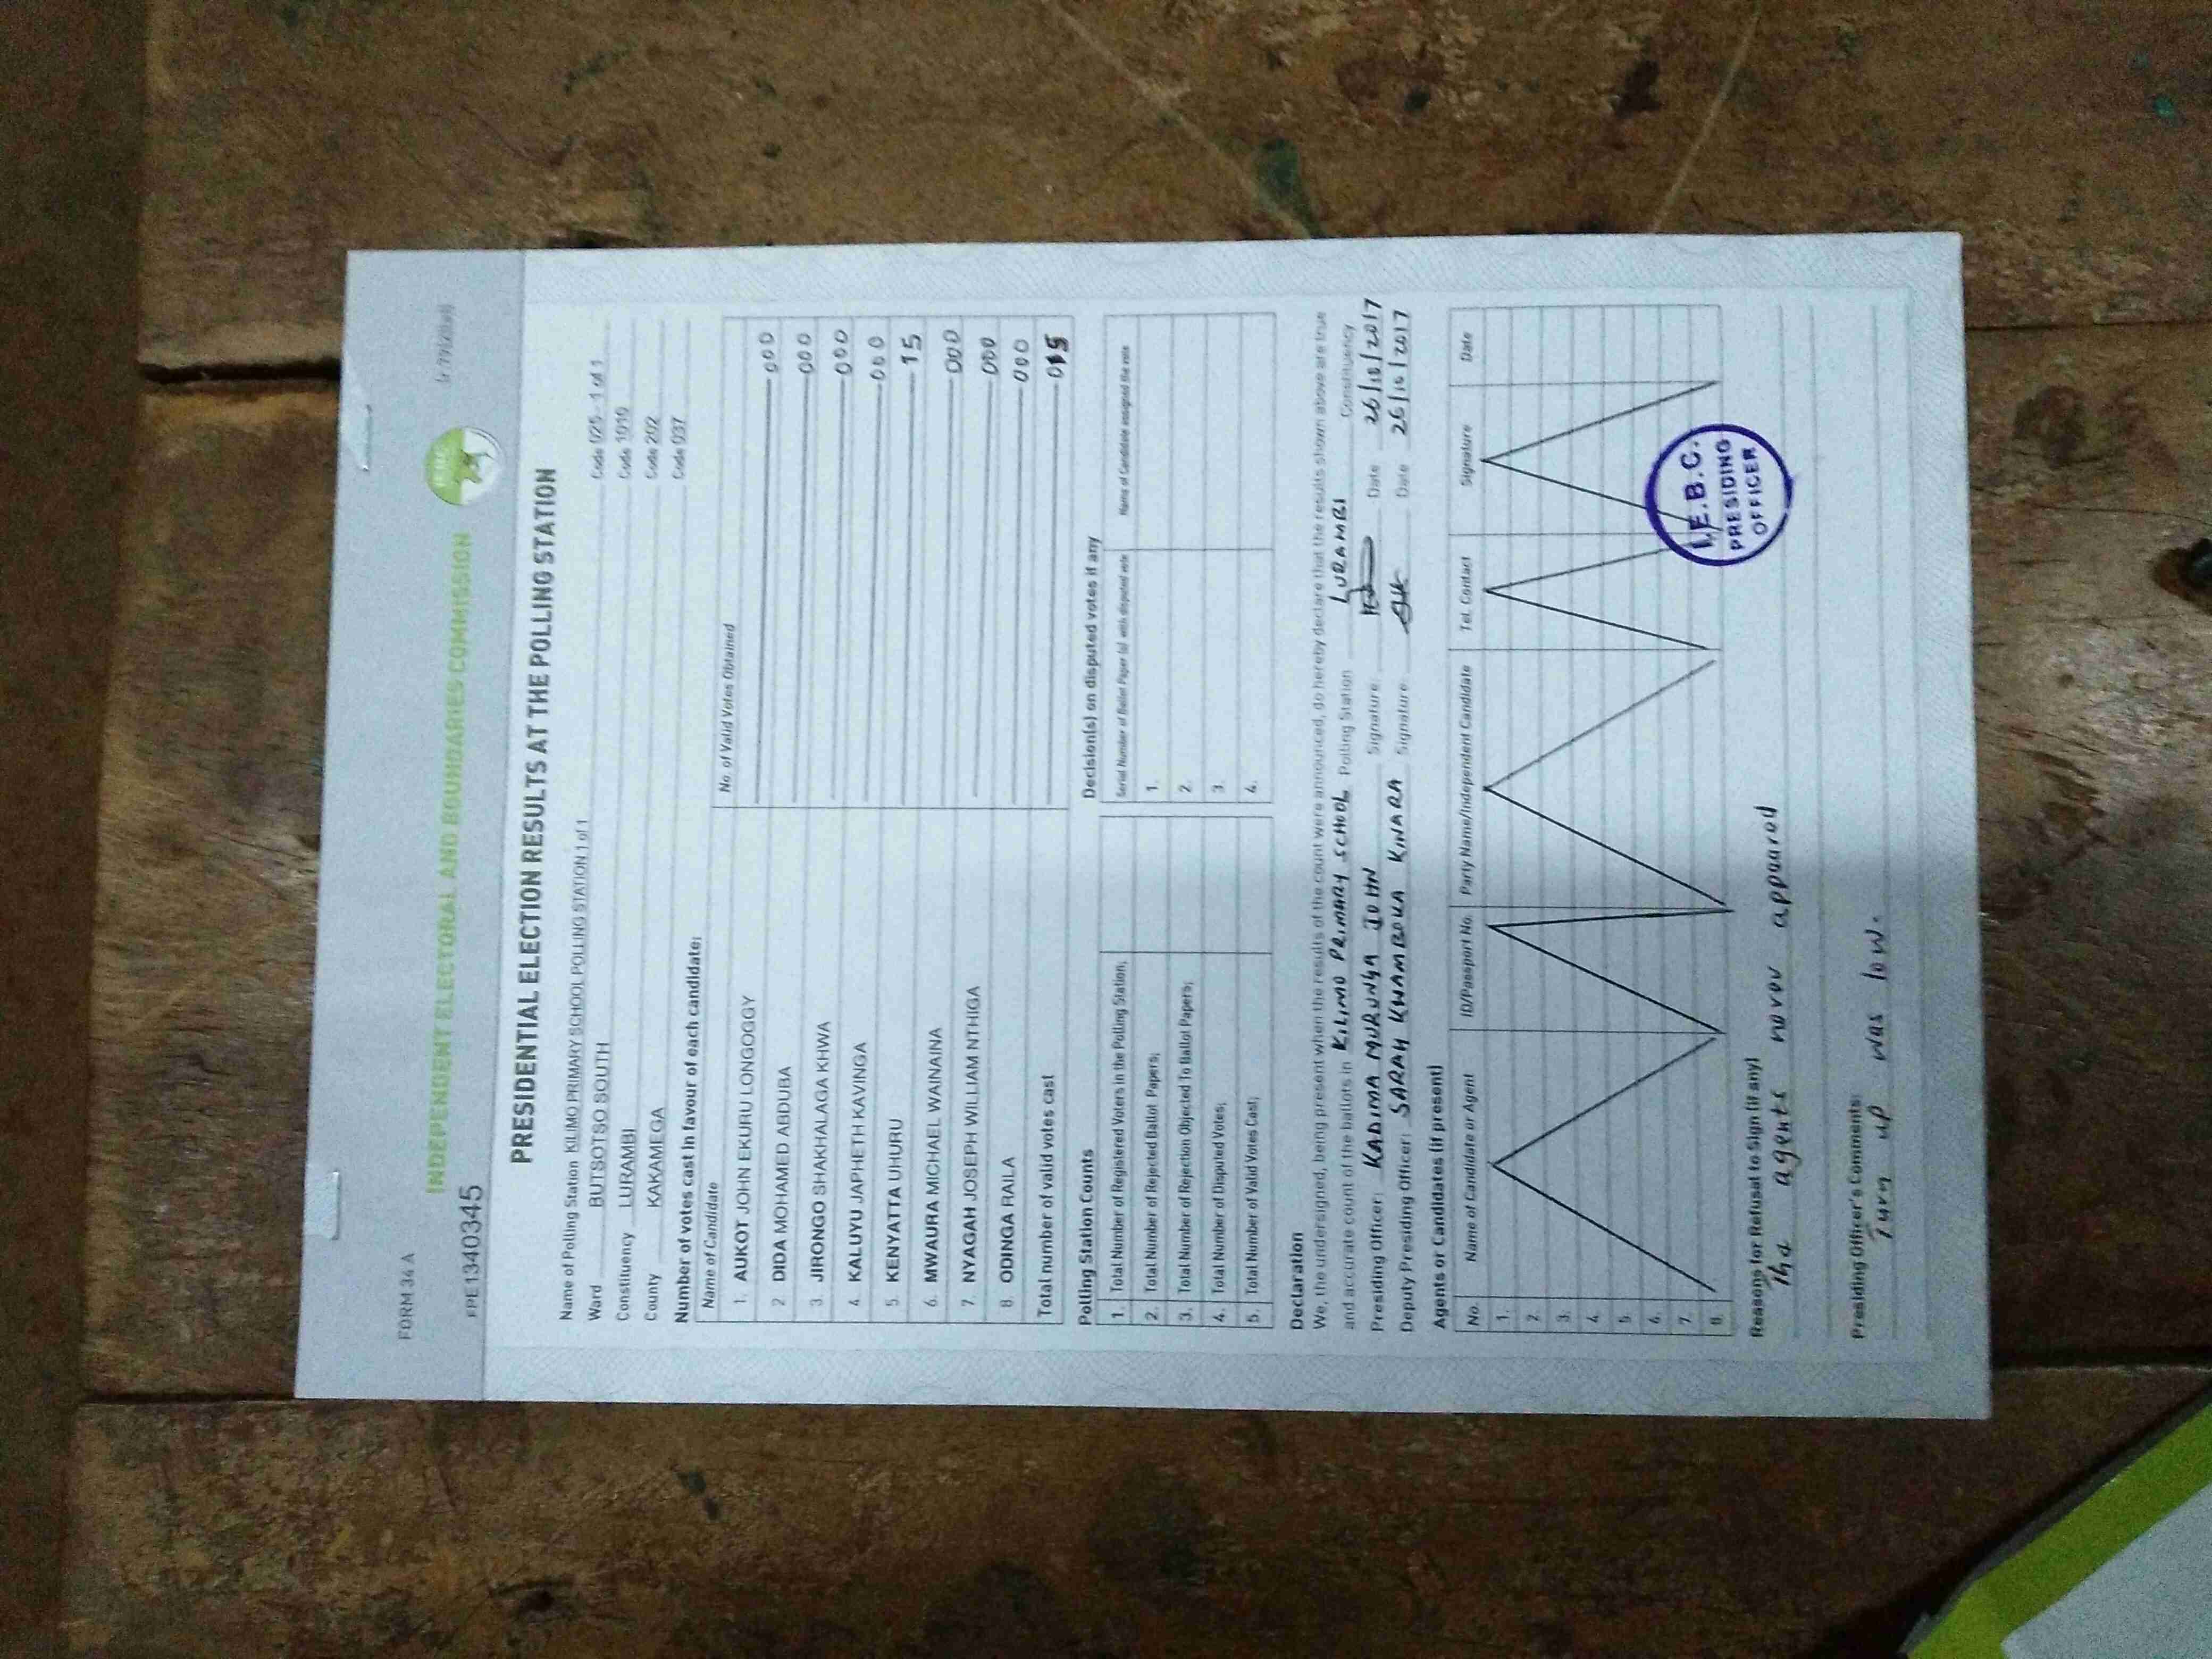 FORM 34 A
INDEPENDENT ELECTORAL AND BOUNDARIES COMMISSION
FPE1340345
PRESIDENTIAL ELECTION RESULTS AT THE POLLING STATION
Name of Polling Station KILIMO PRIMARY SCHOOL POLLING STATION 1 of 1 Code 025 - 1 of 1
Ward BUTSOTSO SOUTH Code 1010
Constituency LURAMBI Code 202
County KAKAMEGA Code 037
Number of votes cast in favour of each candidate;
Name of Candidate No. of Valid Votes Obtained
1. AUKOT JOHN EKURU LONGOGGY 000
2 DIDA MOHAMED ABDUBA 000
3 JIRONGO SHAKHALAGA KHWA 000
4 KALUYU JAPHETH KAVINGA 000
5. KENYATTA UHURU 15
6. MWAURA MICHAEL WAINAINA 000
7. NYAGAH JOSEPH WILLIAM NTHIGA 000
8. ODINGA RAILA 000
Total number of valid votes cast 015
Polling Station Counts Decision(s) on disputed votes if any
Serial Number of Ballot Paper (s) with disputed vote Name of Candidate assigned the vote
1. Total Number of Registered Voters in the Polling Station; 1.
2. Total Number of Rejected Ballot Papers; 2.
3. Total Number of Rejection Objected To Ballot Papers; 3.
4. Total Number of Disputed Votes; 4.
5. Total Number of Valid Votes Cast;
Declaration
We, the undersigned, being present when the results of the count were announced, do hereby declare that the results shown above are true
and accurate count of the ballots in KILIMO PRIMARY SCHOOL Polling Station LURAMBI Constituency
Presiding Officer: KADIMA MURUNGA JOHN Signature: Date 26/10/2017
Deputy Presiding Officer: SARAH KWAMBOKA KINARA Signature: Date 26/10/2017
Agents or Candidates (if present)
No. Name of Candidate or Agent ID/Passport No. Party Name/Independent Candidate Tel. Contact Signature Date
1.
2.
3.
4.
5.
6.
7.
8.
I.E.B.C.
PRESIDING
OFFICER
Reasons for Refusal to Sign (if any)
The agents never appeared
Presiding Officer's Comments:
Turn up was low.